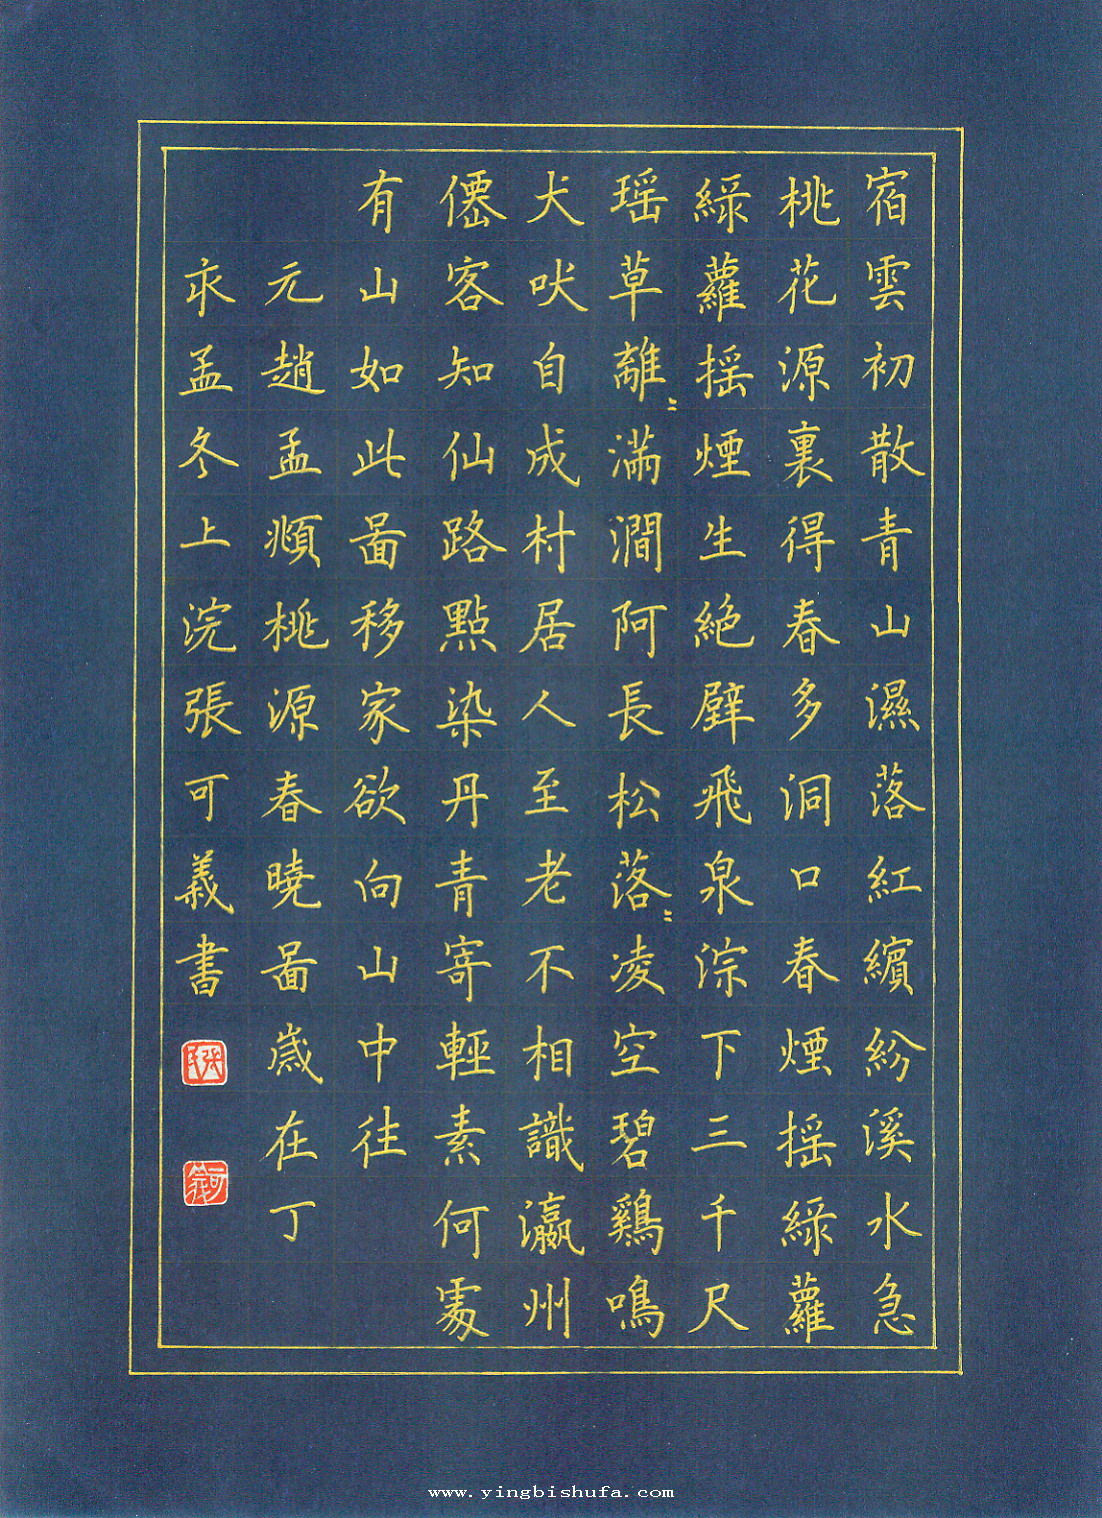 宿雲初散青山濕落紅繽紛溪水急
桃花源裏得春多洞口春煙搖綠蘿
綠蘿搖煙生絕壁飛泉淙下三千尺
瑶草離〻滿澗阿長松落〻凌空碧鷄鳴
犬吠自成村居人至老不相識瀛州
僊客知仙路點染丹青寄輕素何處
有山如此啚移家欲向山中住
元趙孟頫桃源春曉啚歲在丁
亥孟冬上浣張可義書
www.yingbishufa.com